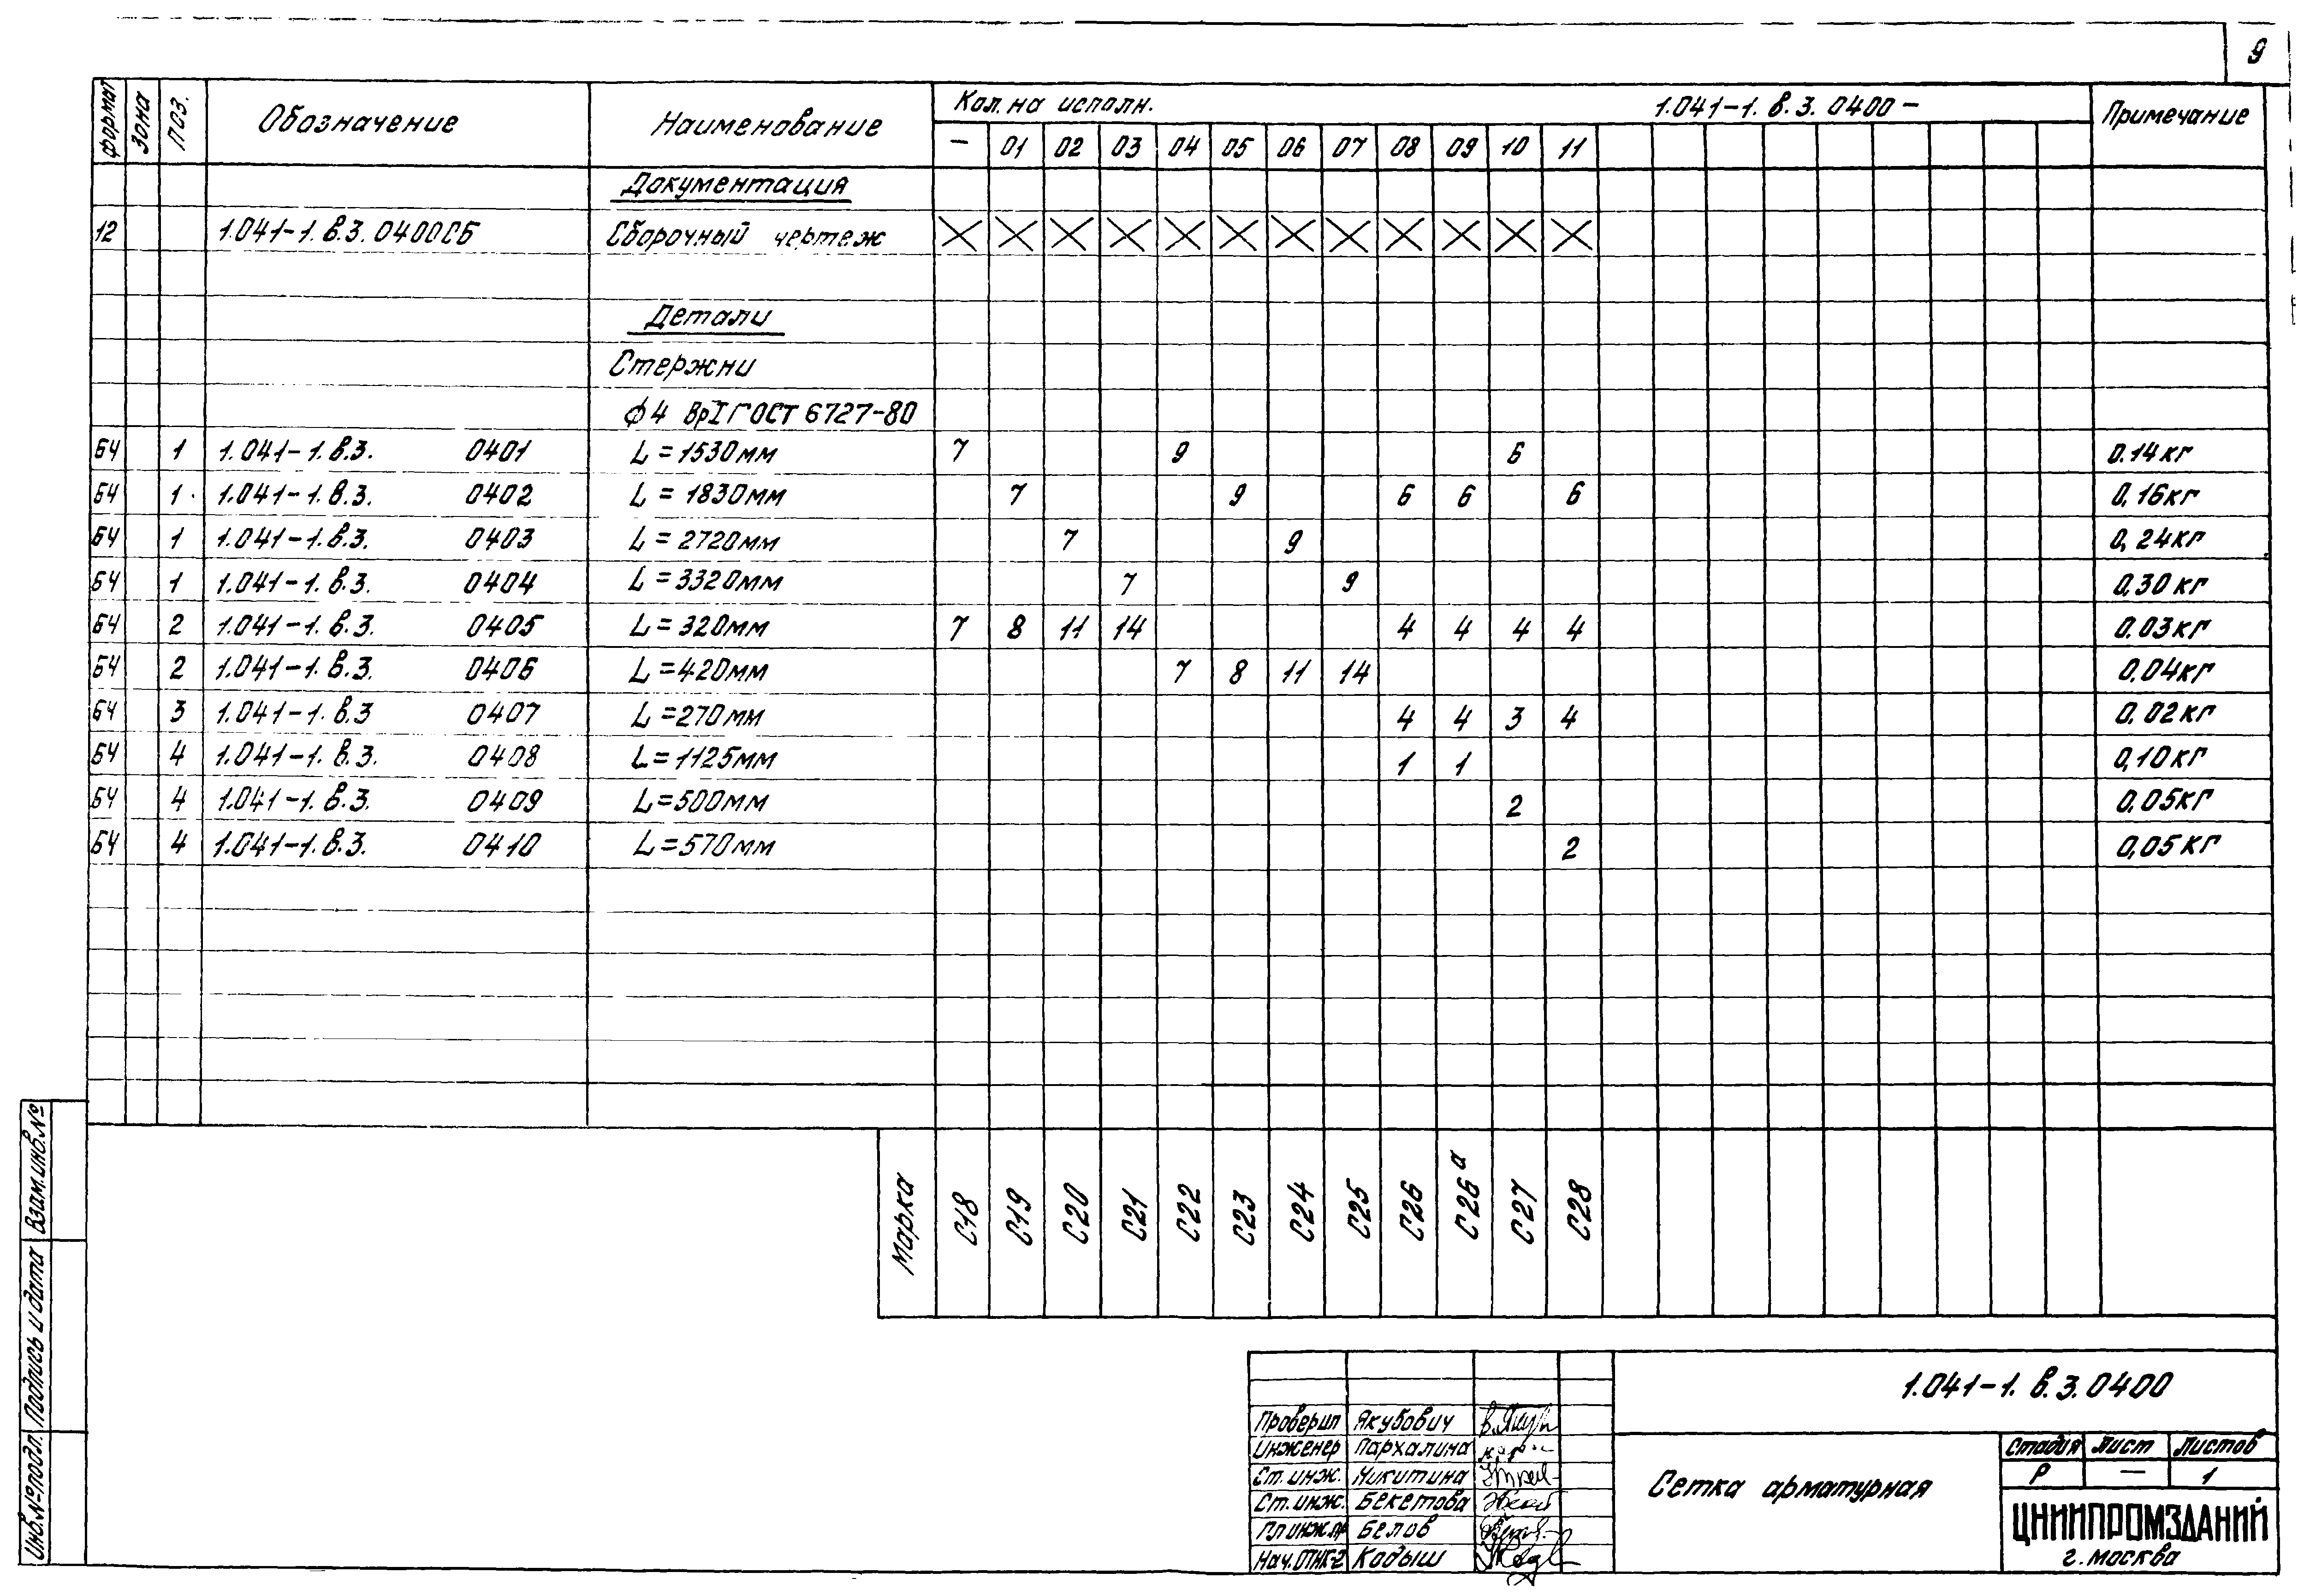 9
формат Зона поз. Обозначение Наименование Кол. на исполн. 1.041-1. в.3. 0400- Примечание
— 01 02 03 04 05 06 07 08 09 10 11
Документация
12 1.041-1. в.3. 0400СБ Сборочный чертеж
Детали
Стержни
ф4 ВрI ГОСТ 6727-80
БЧ 1 1.041-1.в.3. 0401 L=1530мм 7 9 6 0.14кг
БЧ 1 1.041-1.в.3. 0402 L=1830мм 7 9 6 6 6 0,16кг
БЧ 1 1.041-1.в.3. 0403 L=2720мм 7 9 0,24кг
БЧ 1 1.041-1.в.3. 0404 L=3320мм 7 9 0,30кг
БЧ 2 1.041-1.в.3. 0405 L=320мм 7 8 11 14 4 4 4 4 0.03кг
БЧ 2 1.041-1.в.3. 0406 L=420мм 7 8 11 14 0.04кг
БЧ 3 1.041-1.в.3 0407 L=270мм 4 4 3 4 0.02кг
БЧ 4 1.041-1.в.3. 0408 L=1125мм 1 1 0,10кг
БЧ 4 1.041-1.в.3. 0409 L=500мм 2 0,05кг
БЧ 4 1.041-1.в.3. 0410 L=570мм 2 0,05кг
Марка С18 С19 С20 С21 С22 С23 С24 С25 С26 С26а С27 С28
Взам.инв.№
Подпись и дата
Инв.№подл.
1.041-1. в.3.0400
Проверил Якубович
Инженер Пархалина
Ст.инж. Никитина
Ст.инж. Бекетова
Гл инж.пр Белов
Нач.ОТНК-2 Кодыш
Сетка арматурная
Стадия Лист Листов
Р — 1
ЦНИИПРОМЗДАНИЙ
г. Москва